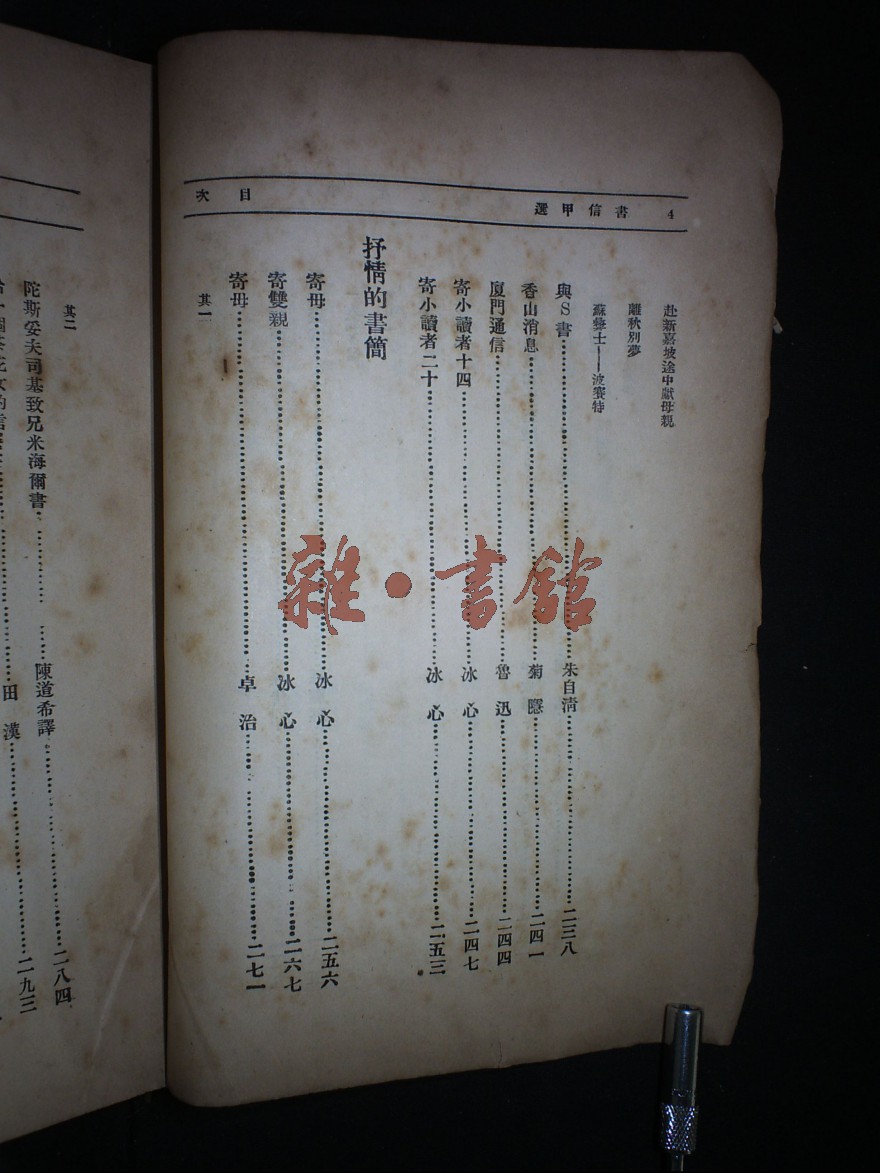 目次
書信甲選 4
赴新嘉坡途中獻母親
離秋別夢
蘇彝士——波賽特
與S書 朱自清 二三八
香山消息 菊隱 二四一
廈門通信 魯迅 二四四
寄小讀者十四 冰心 二四七
寄小讀者二十 冰心 二五三
抒情的書簡
寄母 冰心 二五六
寄雙親 冰心 二六七
寄母 卓治 二七一
其一
其二
陀斯妥夫司基致兄米海爾書 陳道希譯 二八四
田漢 二九三
雜·書館